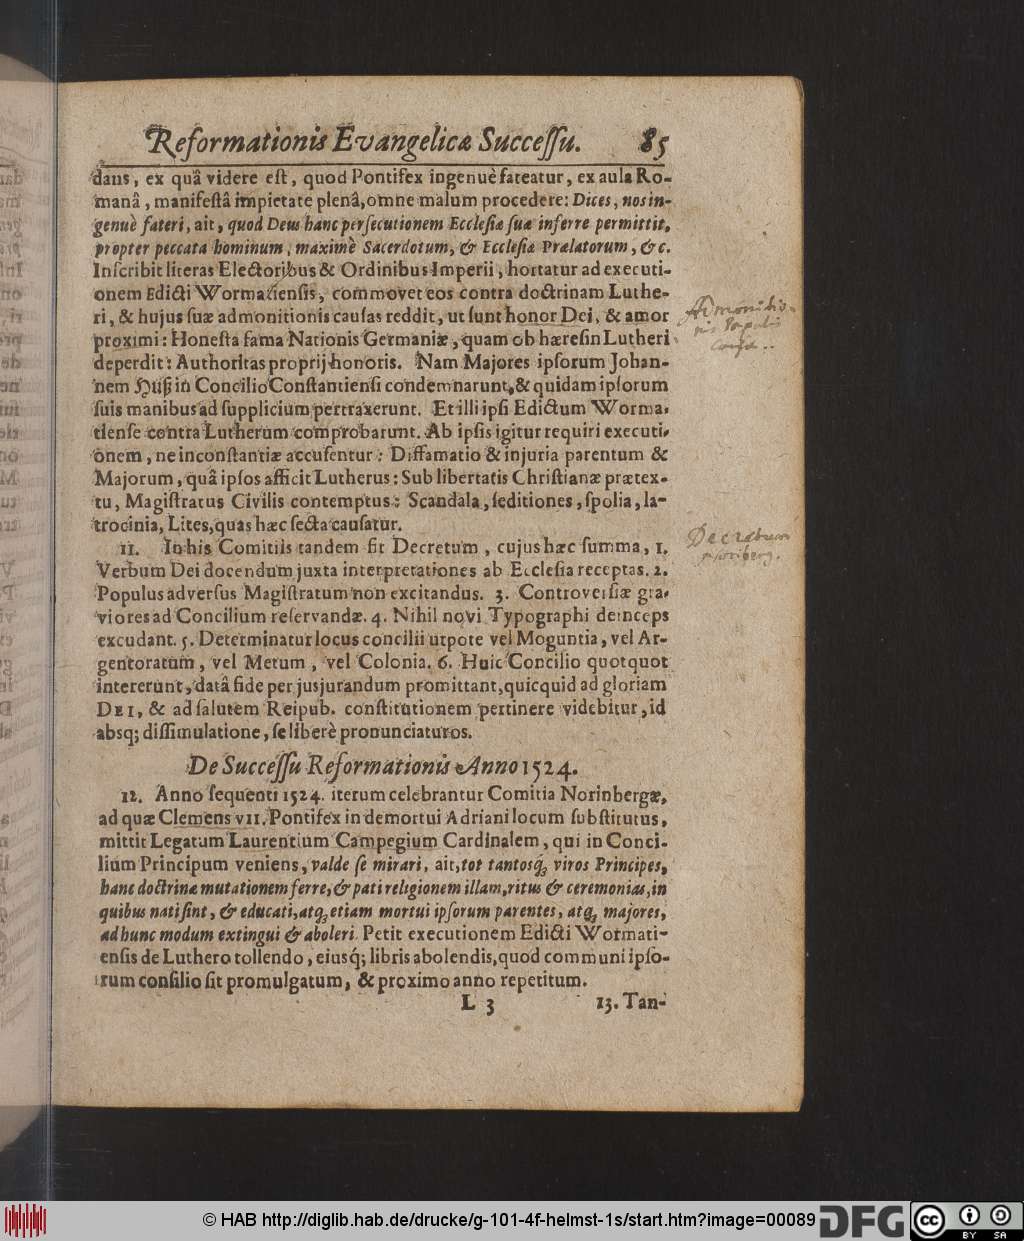 Reformationis Evangelicæ Successu. 85
dans, ex quâ videre est, quod Pontifex ingenuè fateatur, ex aula Ro-
manâ, manifestâ impietate plenâ, omne malum procedere: Dices, nos in-
genuè fateri, ait, quod Deus hanc persecutionem Ecclesiæ suæ inferre permittit,
propter peccata hominum, maximè Sacerdotum, & Ecclesiæ Prælatorum, &c.
Inscribit literas Electoribus & Ordinibus Imperii, hortatur ad executi-
onem Edicti Wormatiensis, commovet eos contra doctrinam Luthe-
ri, & hujus suæ admonitionis causas reddit, ut sunt honor Dei, & amor
proximi: Honesta fama Nationis Germaniæ, quam ob hæresin Lutheri
deperdit: Authoritas proprij honoris. Nam Majores ipsorum Johan-
nem Huß in Concilio Constantiensi condemnarunt, & quidam ipsorum
suis manibus ad supplicium pertraxerunt. Et illi ipsi Edictum Worma-
tiense contra Lutherum comprobarunt. Ab ipsis igitur requiri executi-
onem, ne inconstantiæ accusentur: Diffamatio & injuria parentum &
Majorum, quâ ipsos afficit Lutherus: Sub libertatis Christianæ prætex-
tu, Magistratus Civilis contemptus: Scandala, seditiones, spolia, la-
trocinia, Lites, quas hæc secta causatur.
11. In his Comitiis tandem fit Decretum, cujus hæc summa, 1.
Verbum Dei docendum juxta interpretationes ab Ecclesia receptas. 2.
Populus adversus Magistratum non excitandus. 3. Controversiæ gra-
viores ad Concilium reservandæ. 4. Nihil novi Typographi deinceps
excudant. 5. Determinatur locus concilii utpote vel Moguntia, vel Ar-
gentoratum, vel Metum, vel Colonia. 6. Huic Concilio quotquot
intererunt, datâ fide per jusjurandum promittant, quicquid ad gloriam
DEI, & ad salutem Reipub. constitutionem pertinere videbitur, id
absq; dissimulatione, se liberè pronunciaturos.
De Successu Reformationis Anno 1524.
12. Anno sequenti 1524. iterum celebrantur Comitia Norinbergæ,
ad quæ Clemens VII. Pontifex in demortui Adriani locum substitutus,
mittit Legatum Laurentium Campegium Cardinalem, qui in Conci-
lium Principum veniens, valde se mirari, ait, tot tantosq; viros Principes,
hanc doctrinæ mutationem ferre, & pati religionem illam, ritus & ceremonias, in
quibus nati sint, & educati, atq; etiam mortui ipsorum parentes, atq; majores,
ad hunc modum extingui & aboleri. Petit executionem Edicti Wormati-
ensis de Luthero tollendo, eiusq́; libris abolendis, quod communi ipso-
rum consilio sit promulgatum, & proximo anno repetitum.
L 3 13. Tan-
Admonitio-
Decretum
© HAB http://diglib.hab.de/drucke/g-101-4f-helmst-1s/start.htm?image=00089 DFG CC BY SA